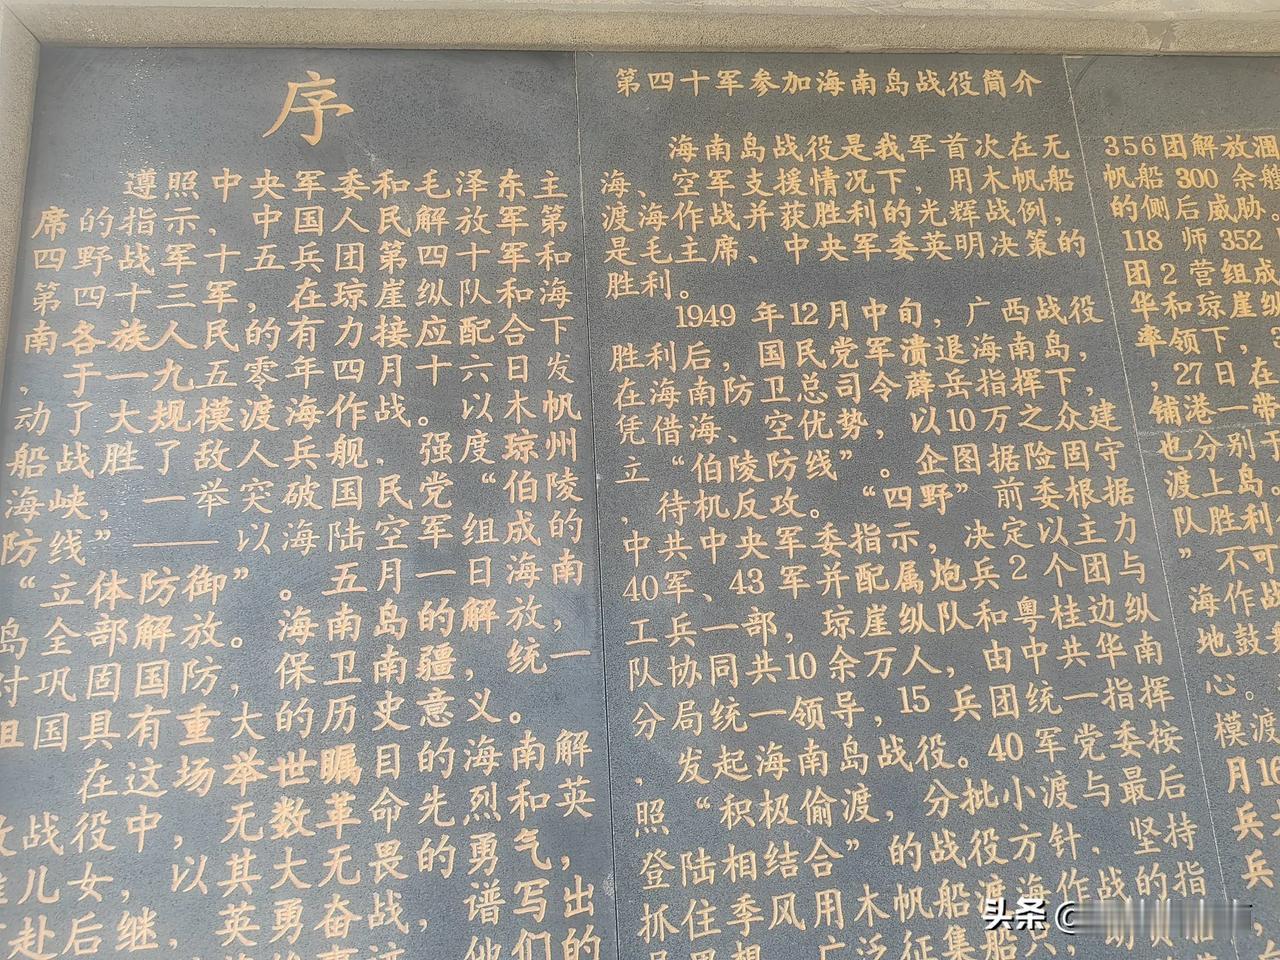 序
遵照中央军委和毛泽东主
席的指示、中国人民解放军第
四野战军十五兵团第四十军和
第四十三军，在琼崖纵队和海
南各族人民的有力接应配合下
，于一九五零年四月十六日发
动了大规模渡海作战。以木帆
船战胜了敌人兵舰，强度琼州
海峡，一举突破国民党“伯陵
防线”——以海陆空军组成的
“立体防御”。五月一日海南
岛全部解放。海南岛的解放，
对巩固国防，保卫南疆，统一
祖国具有重大的历史意义。
在这场举世瞩目的海南解
放战役中，无数革命先烈和英
雄儿女，以其大无畏的勇气，
前赴后继，英勇奋战，谱写出
他们的
第四十军参加海南岛战役简介
海南岛战役是我军首次在无
海、空军支援情况下，用木帆船
渡海作战并获胜利的光辉战例，
是毛主席、中央军委英明决策的
胜利。
1949 年12月中旬，广西战役
胜利后，国民党军溃退海南岛，
在海南防卫总司令薜岳指挥下，
凭借海、空优势，以10万之众建
立“伯陵防线”。企图据险固守
，待机反攻。“四野”前委根据
中共中央军委指示，决定以主力
40军、43 军并配属炮兵2 个团与
工兵一部，琼崖纵队和粤桂边纵
队协同共10 余万人，由中共华南
分局统一领导，15 兵团统一指挥
，发起海南岛战役。40 军党委按
照“积极偷渡，分批小渡与最后
登陆相结合”的战役方针、坚持
抓住季风用木帆船渡海作战的指
导思想，广泛征集船只，
356团解放涠
帆船 300 余艘
的侧后威胁。
118 师 352
团2 营组成
华和琼崖纵
率领下，
，27日在
铺港一带
也分别于
渡上岛。
队胜利
”不可
海作战
地鼓
心。
模渡
月16
兵
兵
头条 @